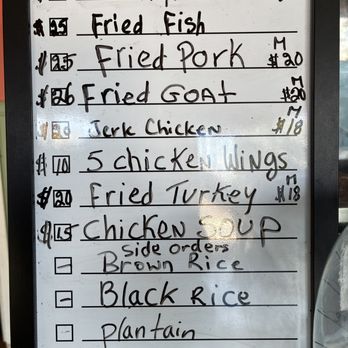 $25 Fried Fish
$25 Fried Pork M $20
$26 Fried GOAT M $20
$20 Jerk Chicken M $18
$10 5 chicken Wings
$20 Fried Turkey M $18
$15 Chicken SOUP
Side orders
Brown Rice
Black Rice
plantain